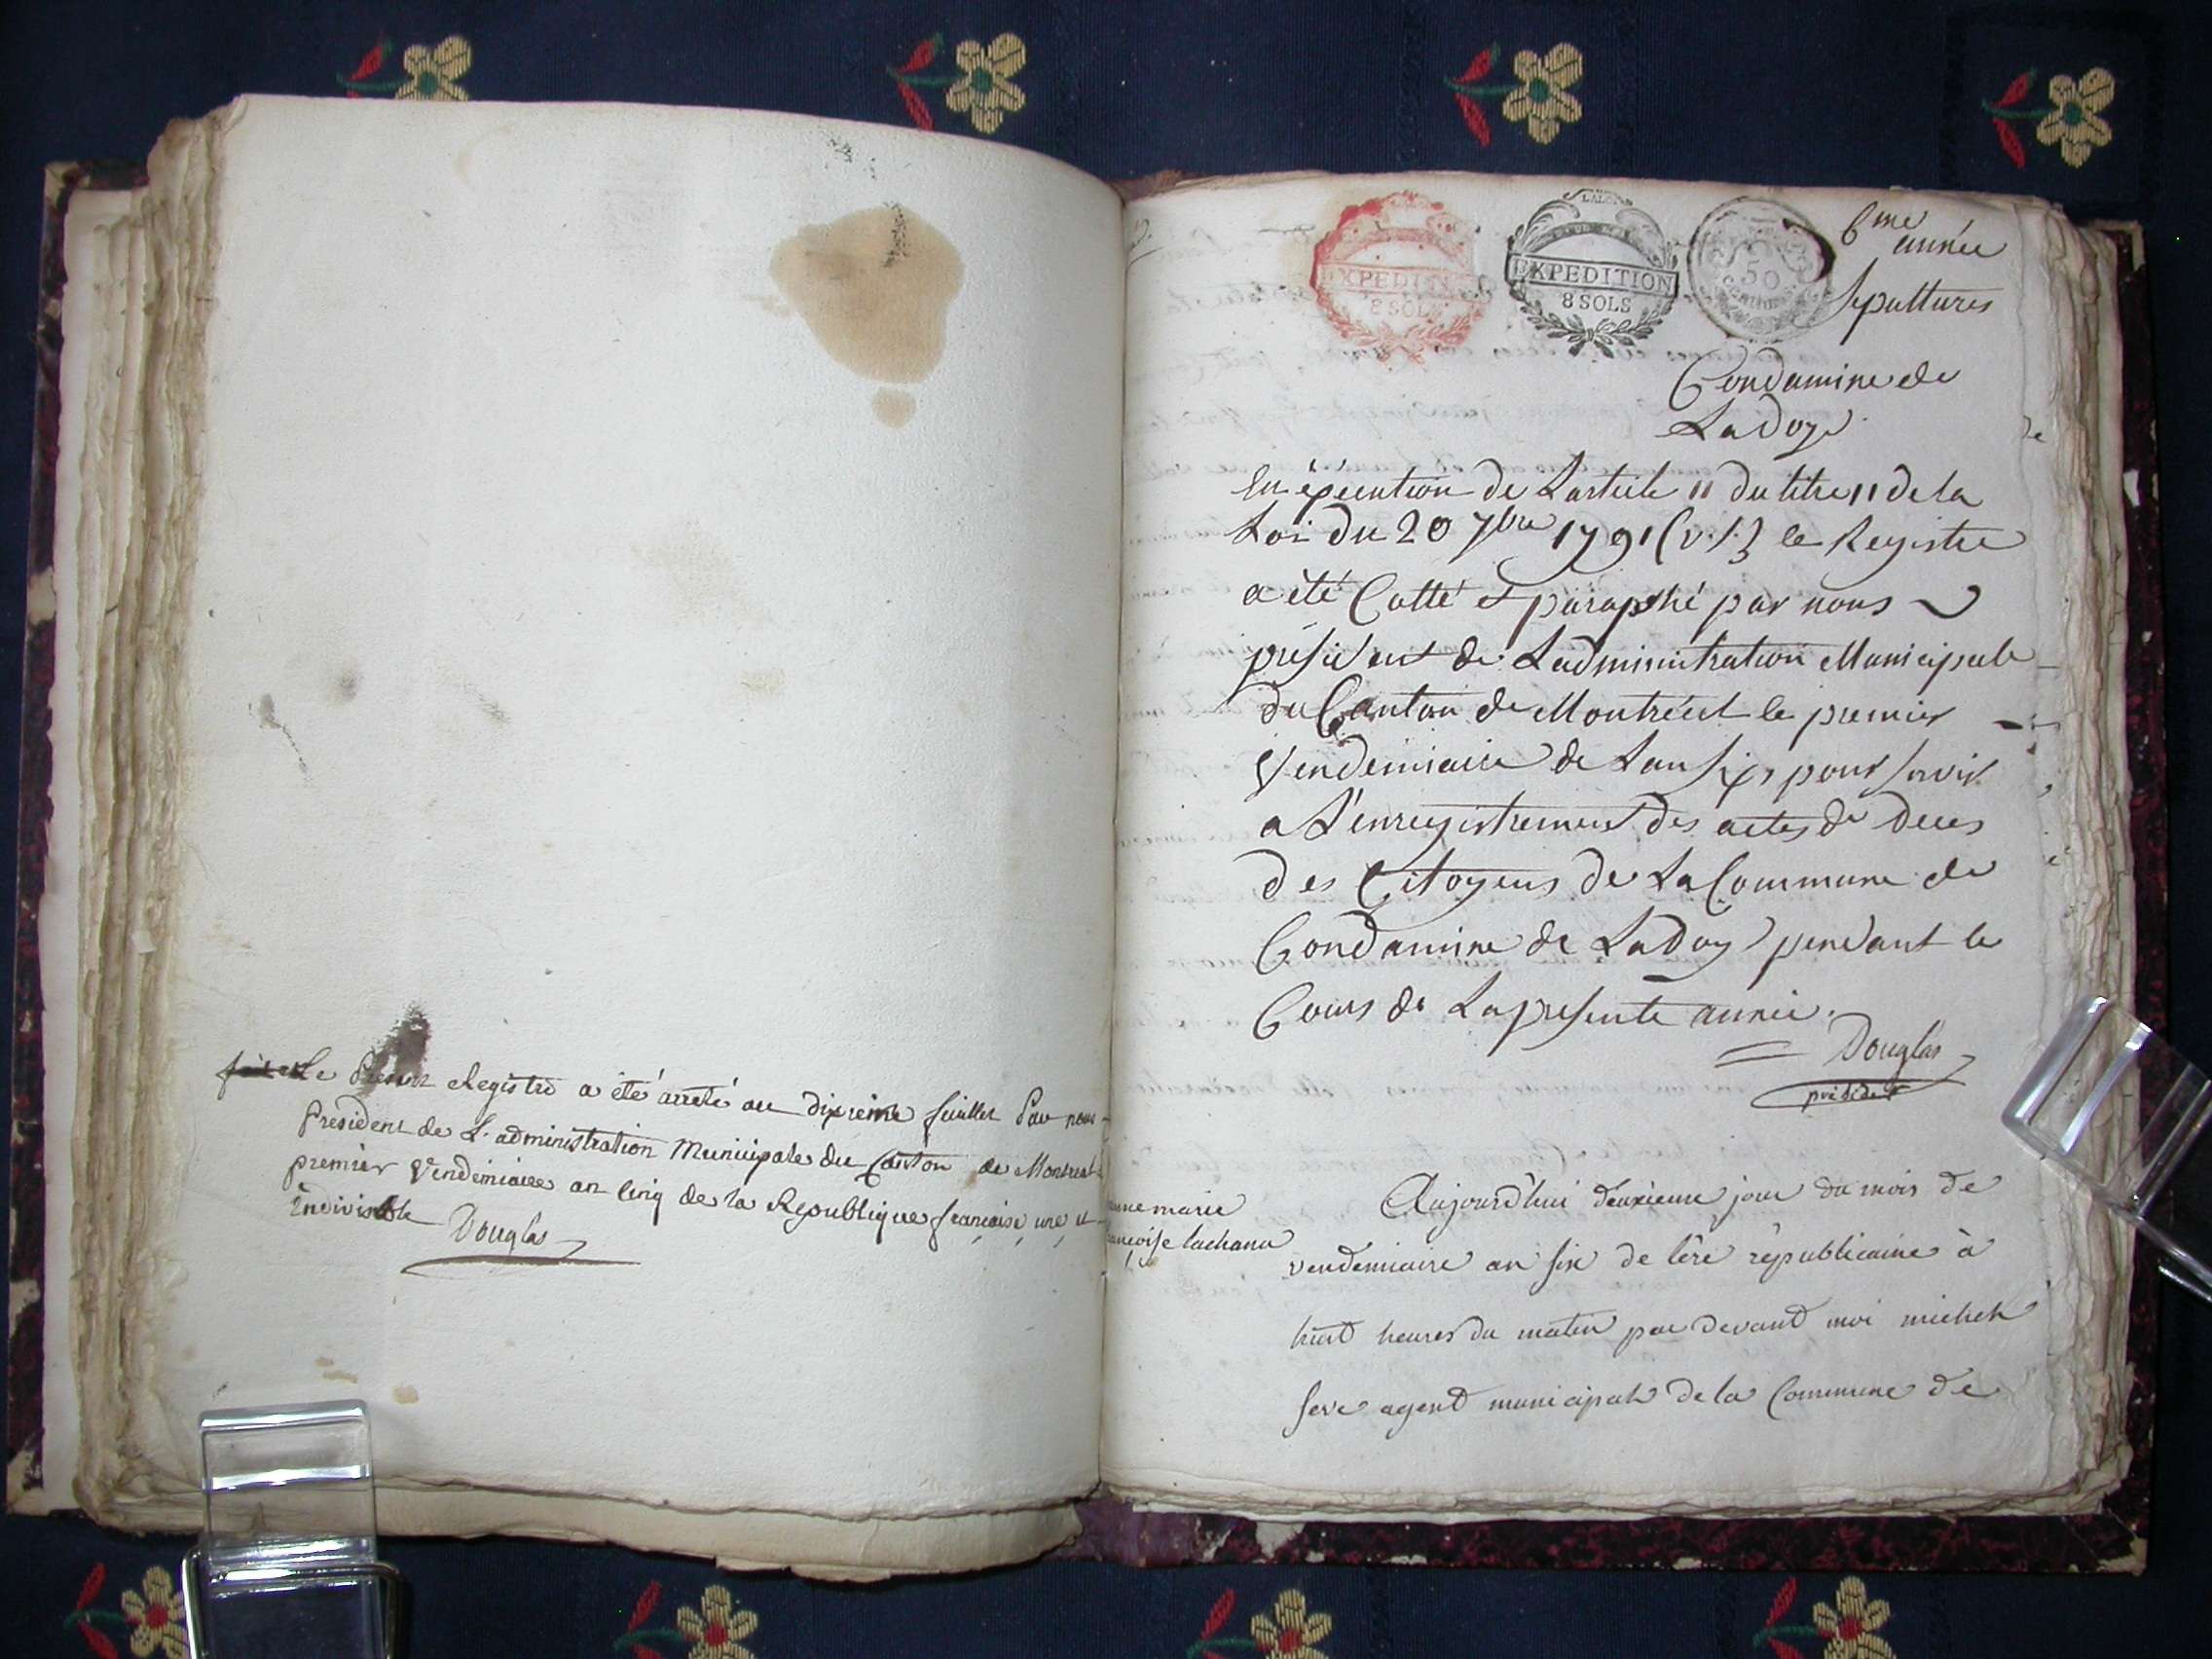 Le présent Registre a été arrêté au dixieme feuillet Par nous
Président de L'administration Municipale du Canton de Montreal
premier Vendémiaire an Cinq de la République française, une, et
Indivisible Douglas
EXPEDITION
8 SOLS
LALOI
EXPEDITION
8 SOLS
50
6me
année
Sepultures
Condamine de
La Doye
En éxécution de L'article 11 du titre 11 de la
Loi du 20 7bre 1791 (v. s.) le Registre
a été Cotté et paraphé par nous
président de L'administration Municipale
du Canton de Montréal le premier
Vendémiaire de L'an Six, pour servir
a L'enregistrement des actes de Deces
des Citoyens de La Commune de
Condamine de La Doy pendant le
Cours de La présente année.
Douglas
président
anne marie
françoise lachana
Aujourd'hui deuxieme jour du mois de
vendemiaire an six de l'ère républicaine à
huit heures du matin par devant moi michel
seve agent municipal de la Commune de